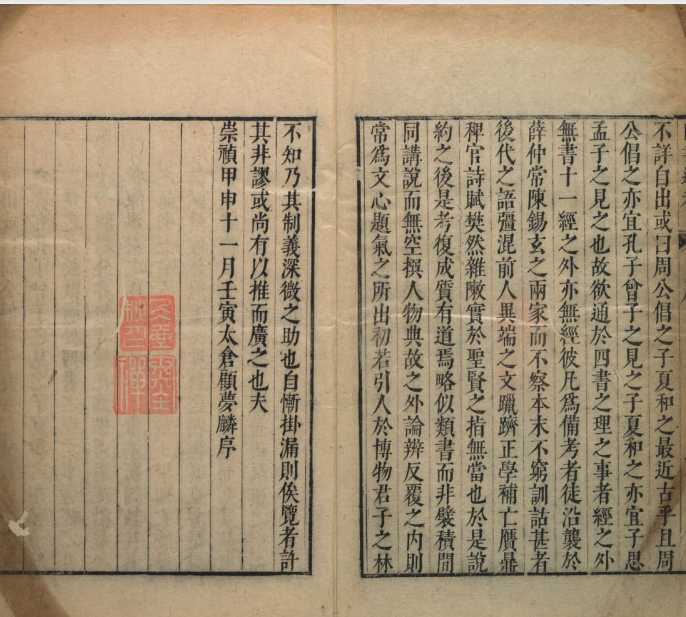 不詳自出或曰周公倡之子夏和之最近古乎且周
公倡之亦宜孔子曾子之見之子夏和之亦宜子思
孟子之見之也故欲通於四書之理之事者經之外
無書十一經之外亦無經彼凡爲備考者徒沿襲於
薛仲常陳錫玄之兩家而不察本末不窮訓詁甚者
後代之語彊混前人異端之文躐躋正學補亡贋鼎
稗官詩賦樊然雜陳實於聖賢之指無當也於是說
約之後是考復成質有道焉略似類書而非襞積閒
同講說而無空撰人物典故之外論辨反覆之內則
常爲文心題氣之所出初若引人於博物君子之林
不知乃其制義深微之助也自慚掛漏則俟覽者訐
其非謬或尚有以推而廣之也夫
崇禎甲申十一月壬寅太倉顧夢麟序